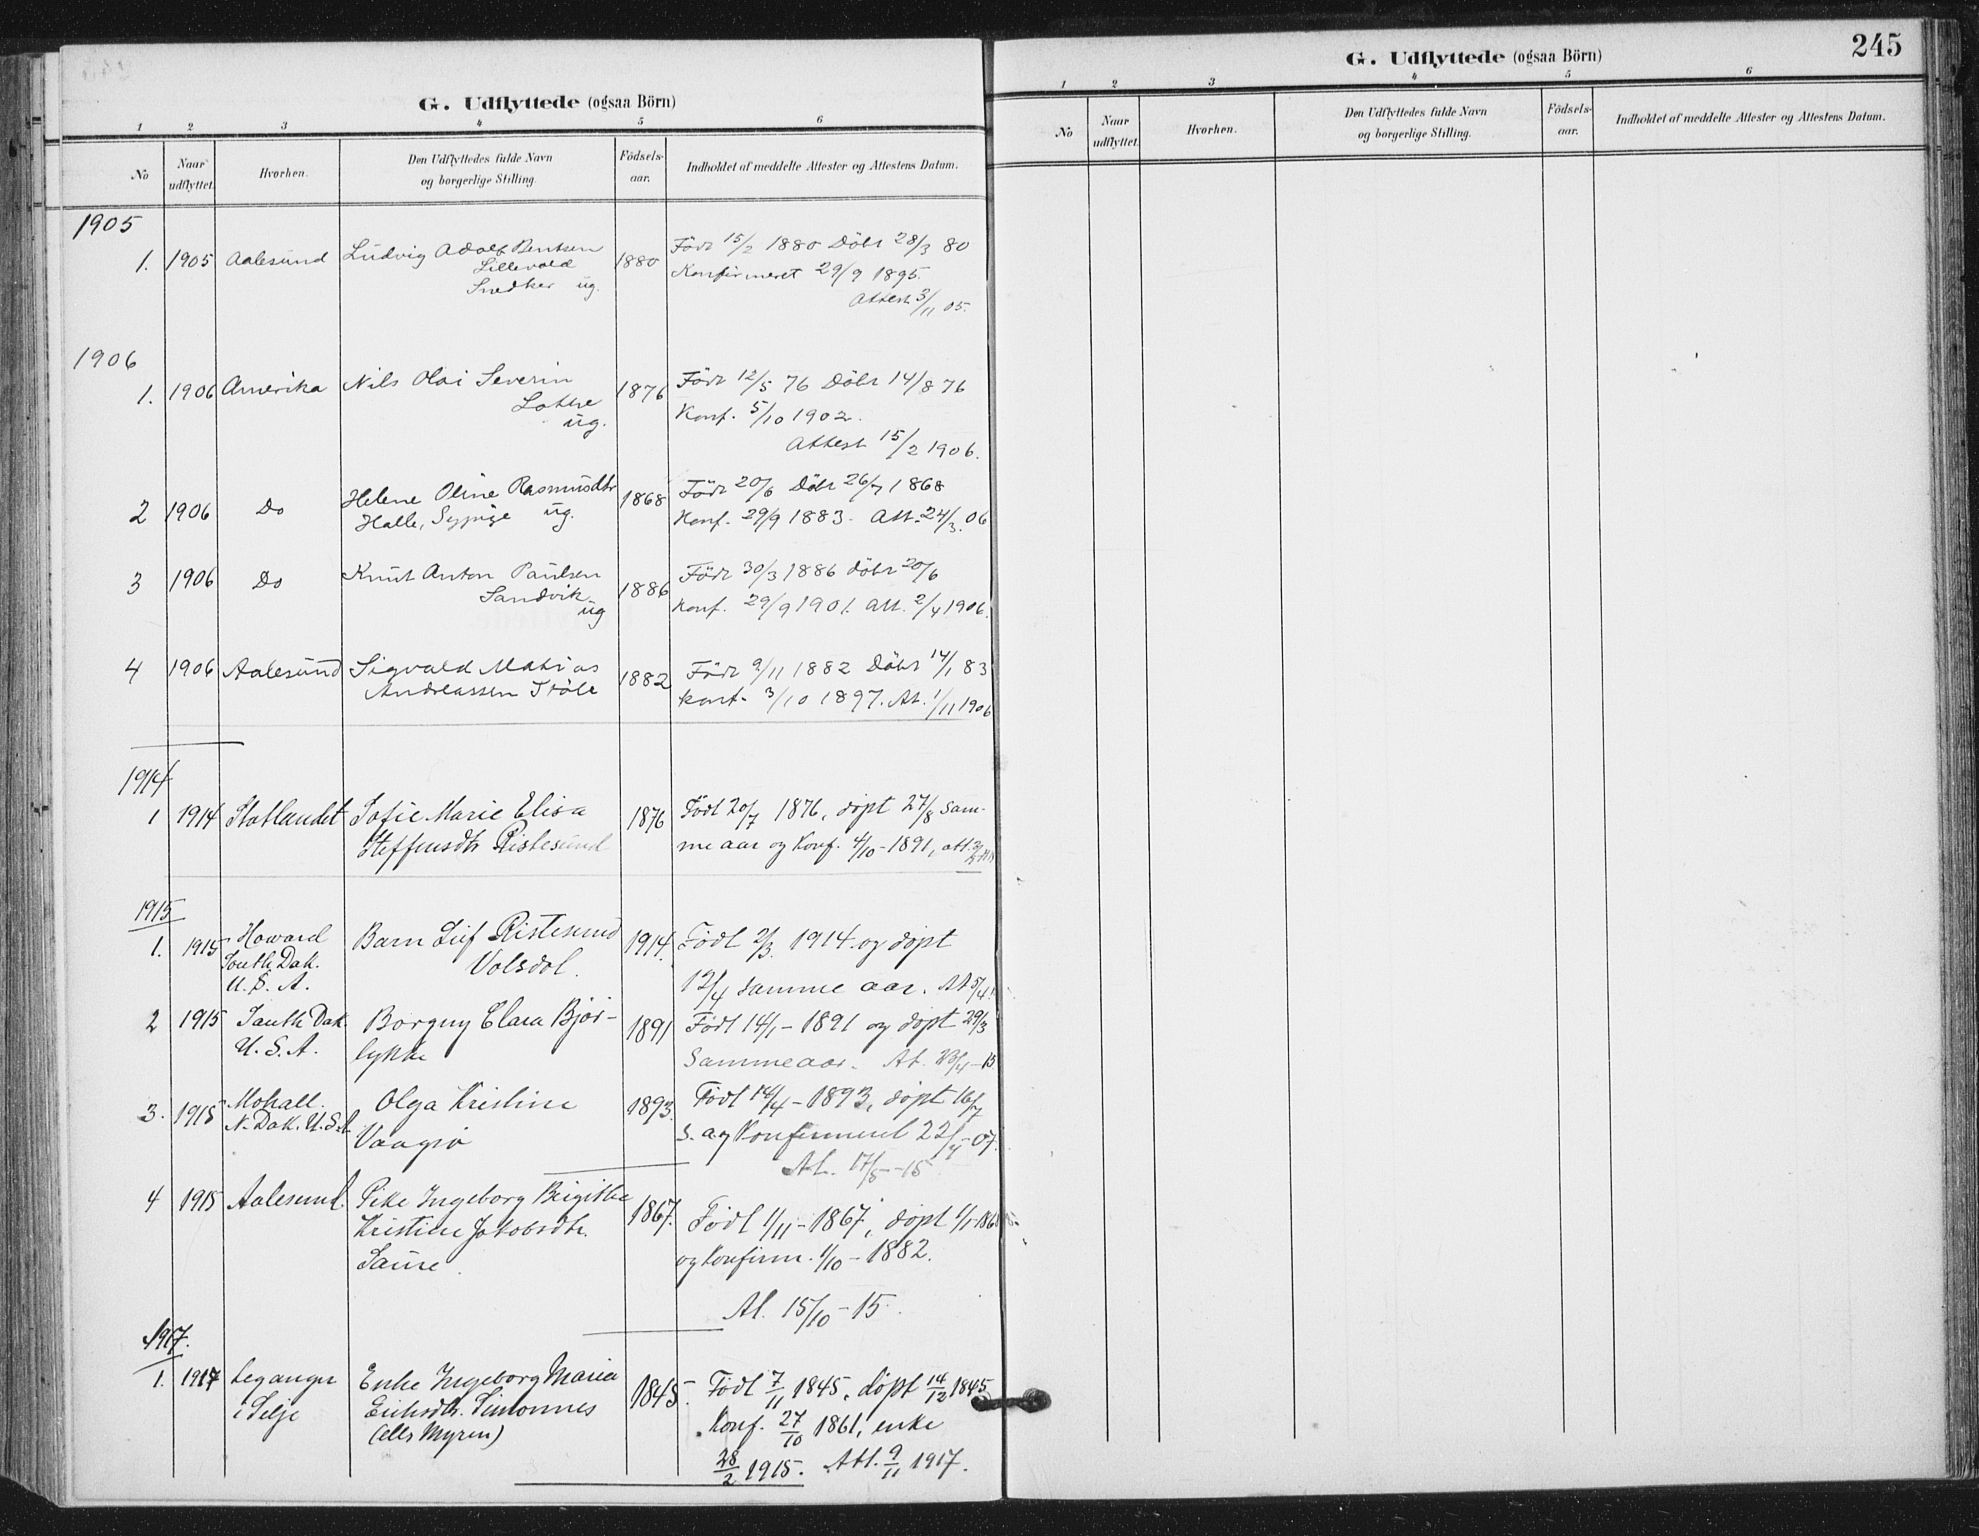 G. Udflyttede (ogsaa Börn)
1 2 3 4 5 6
No Naar udflyttet. Hvorhen. Den Udflyttedes fulde Navn og borgerlige Stilling. Födsels-aar. Indholdet af meddelte Attester og Attestens Datum.
1905
1. 1905 Aalesund Ludvig Adolf Bentsen 1880 Födt 15/2 1880 Döbt 28/3 80
Lillevold Konfirmeret 29/9 1895.
Snedker ug. Attest 3/11 05.
1906
1. 1906 Amerika Nils Olai Severin 1876 Födt 12/5 76 Döbt 14/8 76
Konf. 5/10 1902.
ug. Attest 15/2 1906.
2 1906 Do Helene Oline Rasmusdtr 1868 Födt 20/6 Döbt 26/7 1868
Halle, Sypige ug. Konf. 29/9 1883. Att. 24/3 06
3 1906 Do Knut Anton Paulsen 1886 Födt 30/3 1886 döbt 20/6
Sandvik Konf. 29/9 1901. Att. 2/4 1906.
ug
4 1906 Aalesund Sigvald Matias 1882 Födt 9/11 1882 Döbt 14/1 83
Andreassen konf. 3/10 1897. At. 1/11 1906
1914
1 1914 Statlandet Sofie Marie Elisa 1876 Födt 20/7 1876, döpt 27/8 sam-
Steffensdtr Ristesund me aar og konf. 4/10-1891, att.
1915
1. 1915 Howard Barn Leif Ristesund 1914. Födt 2/3. 1914. og döpt
South Dak. Volsdal.
U. S. A. 12/4 samme aar. At 5/4
2 1915 South Dak. Borgny Clara Bjør- 1891 Födt 14/1-1891 og döpt 29/3
U. S. A. lykke samme aar. At. 13/4-15
3. 1915 Mohall. Olga Kristine 1893. Födt 14/4-1893, döpt 16/7
N. Dak. U.S.A. Vaagsø s. a. og Konfirmeret 22/9-07.
At. 17/5-15
4 1915 Aalesund. Pike Ingeborg Birgithe 1867. Födt 1/11-1867, döpt 1/1-1868
Kristine Jakobsdtr. og konfirm. 1/10-1882.
Saure
At. 15/10-15.
1917.
1. 1917 Leganger Enke Ingeborg Maria 1845. Födt 7/11 1845, döpt 14/12 1845
i Selje Eriksdtr. Simonnes Konf. 27/10 1861, enke
(ells Myren) 28/2 1915. Att. 9/11 1917.
G. Udflyttede (ogsaa Börn)
245
1 2 3 4 5 6
No Naar udflyttet. Hvorhen. Den Udflyttedes fulde Navn og borgerlige Stilling. Födsels-aar. Indholdet af meddelte Attester og Attestens Datum.